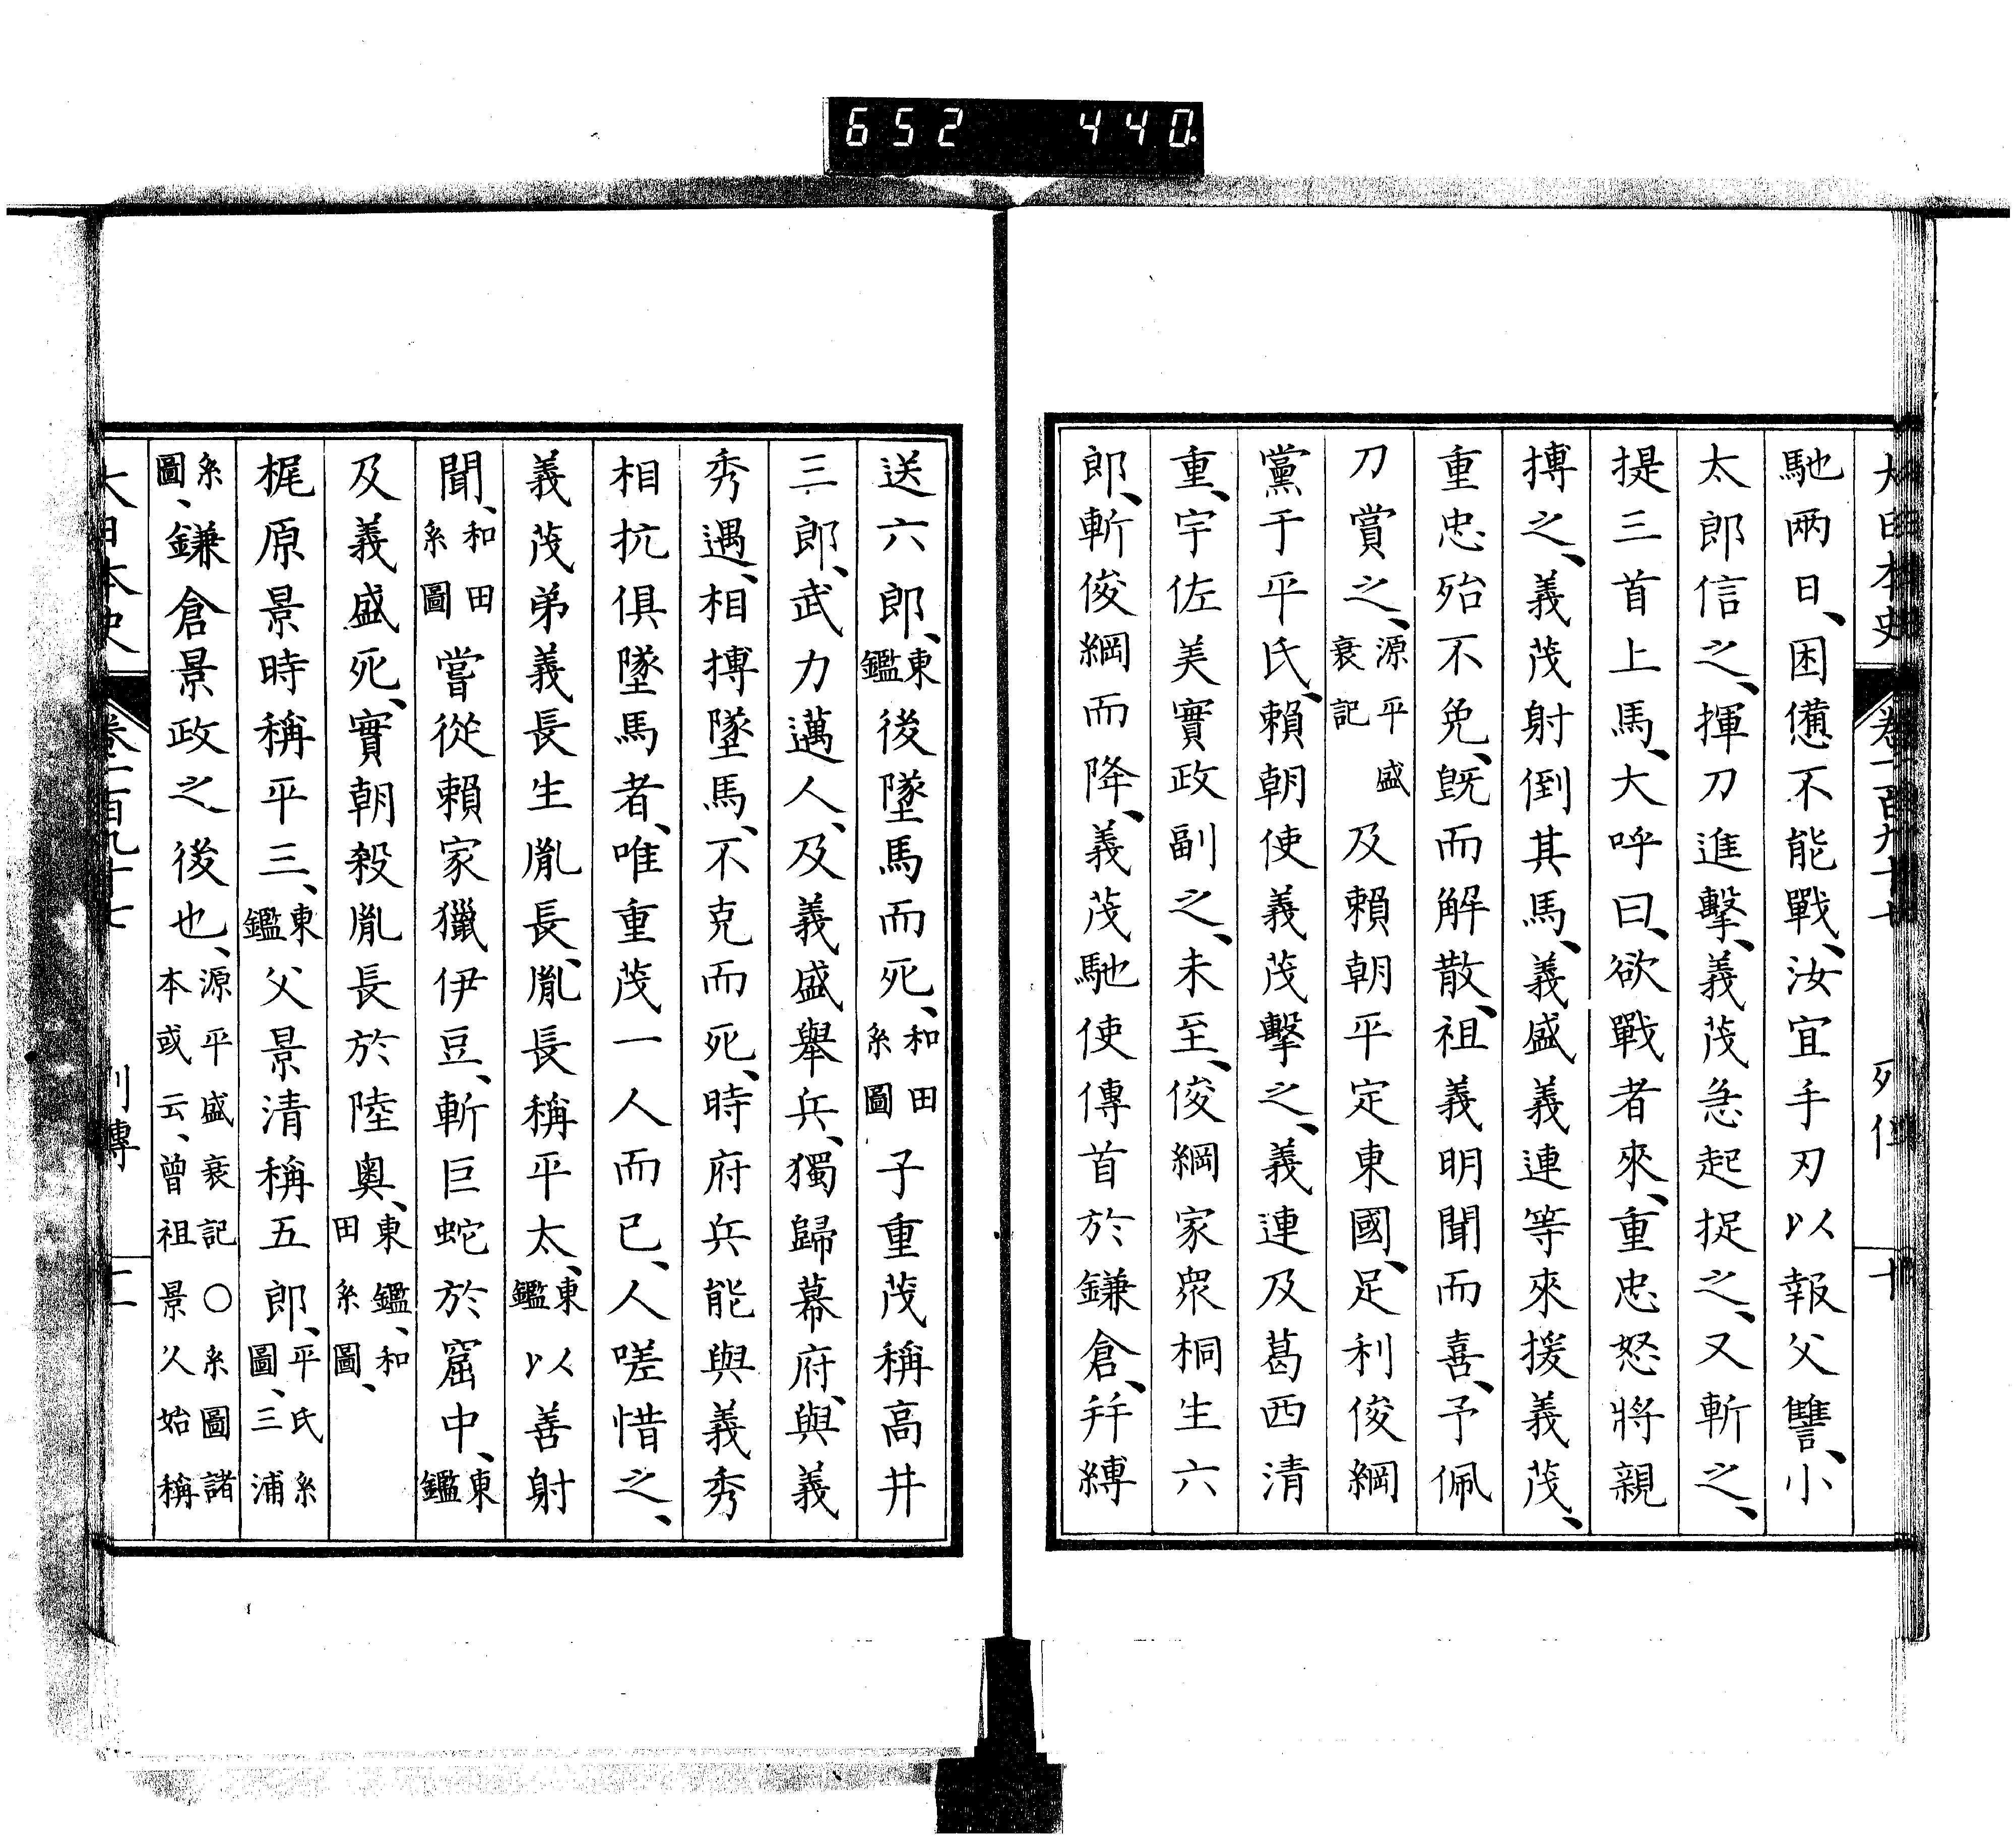 652 440
大日本史 卷一百九十七 列傳 十
馳兩日、困憊不能戰、汝宜手刃以報父讐、小
太郎信之、揮刀進擊、義茂急起捉之、又斬之、
提三首上馬、大呼曰、欲戰者來、重忠怒將親
搏之、義茂射倒其馬、義盛義連等來援義茂、
重忠殆不免、旣而解散、祖義明聞而喜、予佩
刀賞之、源平盛衰記 及賴朝平定東國、足利俊綱
黨于平氏、賴朝使義茂擊之、義連及葛西清
重、宇佐美實政副之、未至、俊綱家衆桐生六
郎、斬俊綱而降、義茂馳使傳首於鎌倉、幷縛
送六郎、東鑑後墜馬而死、和田系圖 子重茂稱高井
三郎、武力邁人、及義盛舉兵、獨歸幕府、與義
秀遇、相搏墜馬、不克而死、時府兵能與義秀
相抗俱墜馬者、唯重茂一人而已、人嗟惜之、
義茂弟義長生胤長、胤長稱平太、東鑑以善射
聞、和田系圖 嘗從賴家獵伊豆、斬巨蛇於窟中、東鑑
及義盛死、實朝殺胤長於陸奧、東鑑、和田系圖、
梶原景時稱平三、東鑑父景清稱五郎、平氏系圖、三浦
系圖、鎌倉景政之後也、源平盛衰記○系圖諸本或云、曾祖景久始稱
大日本史 卷一百九十七 列傳 十一